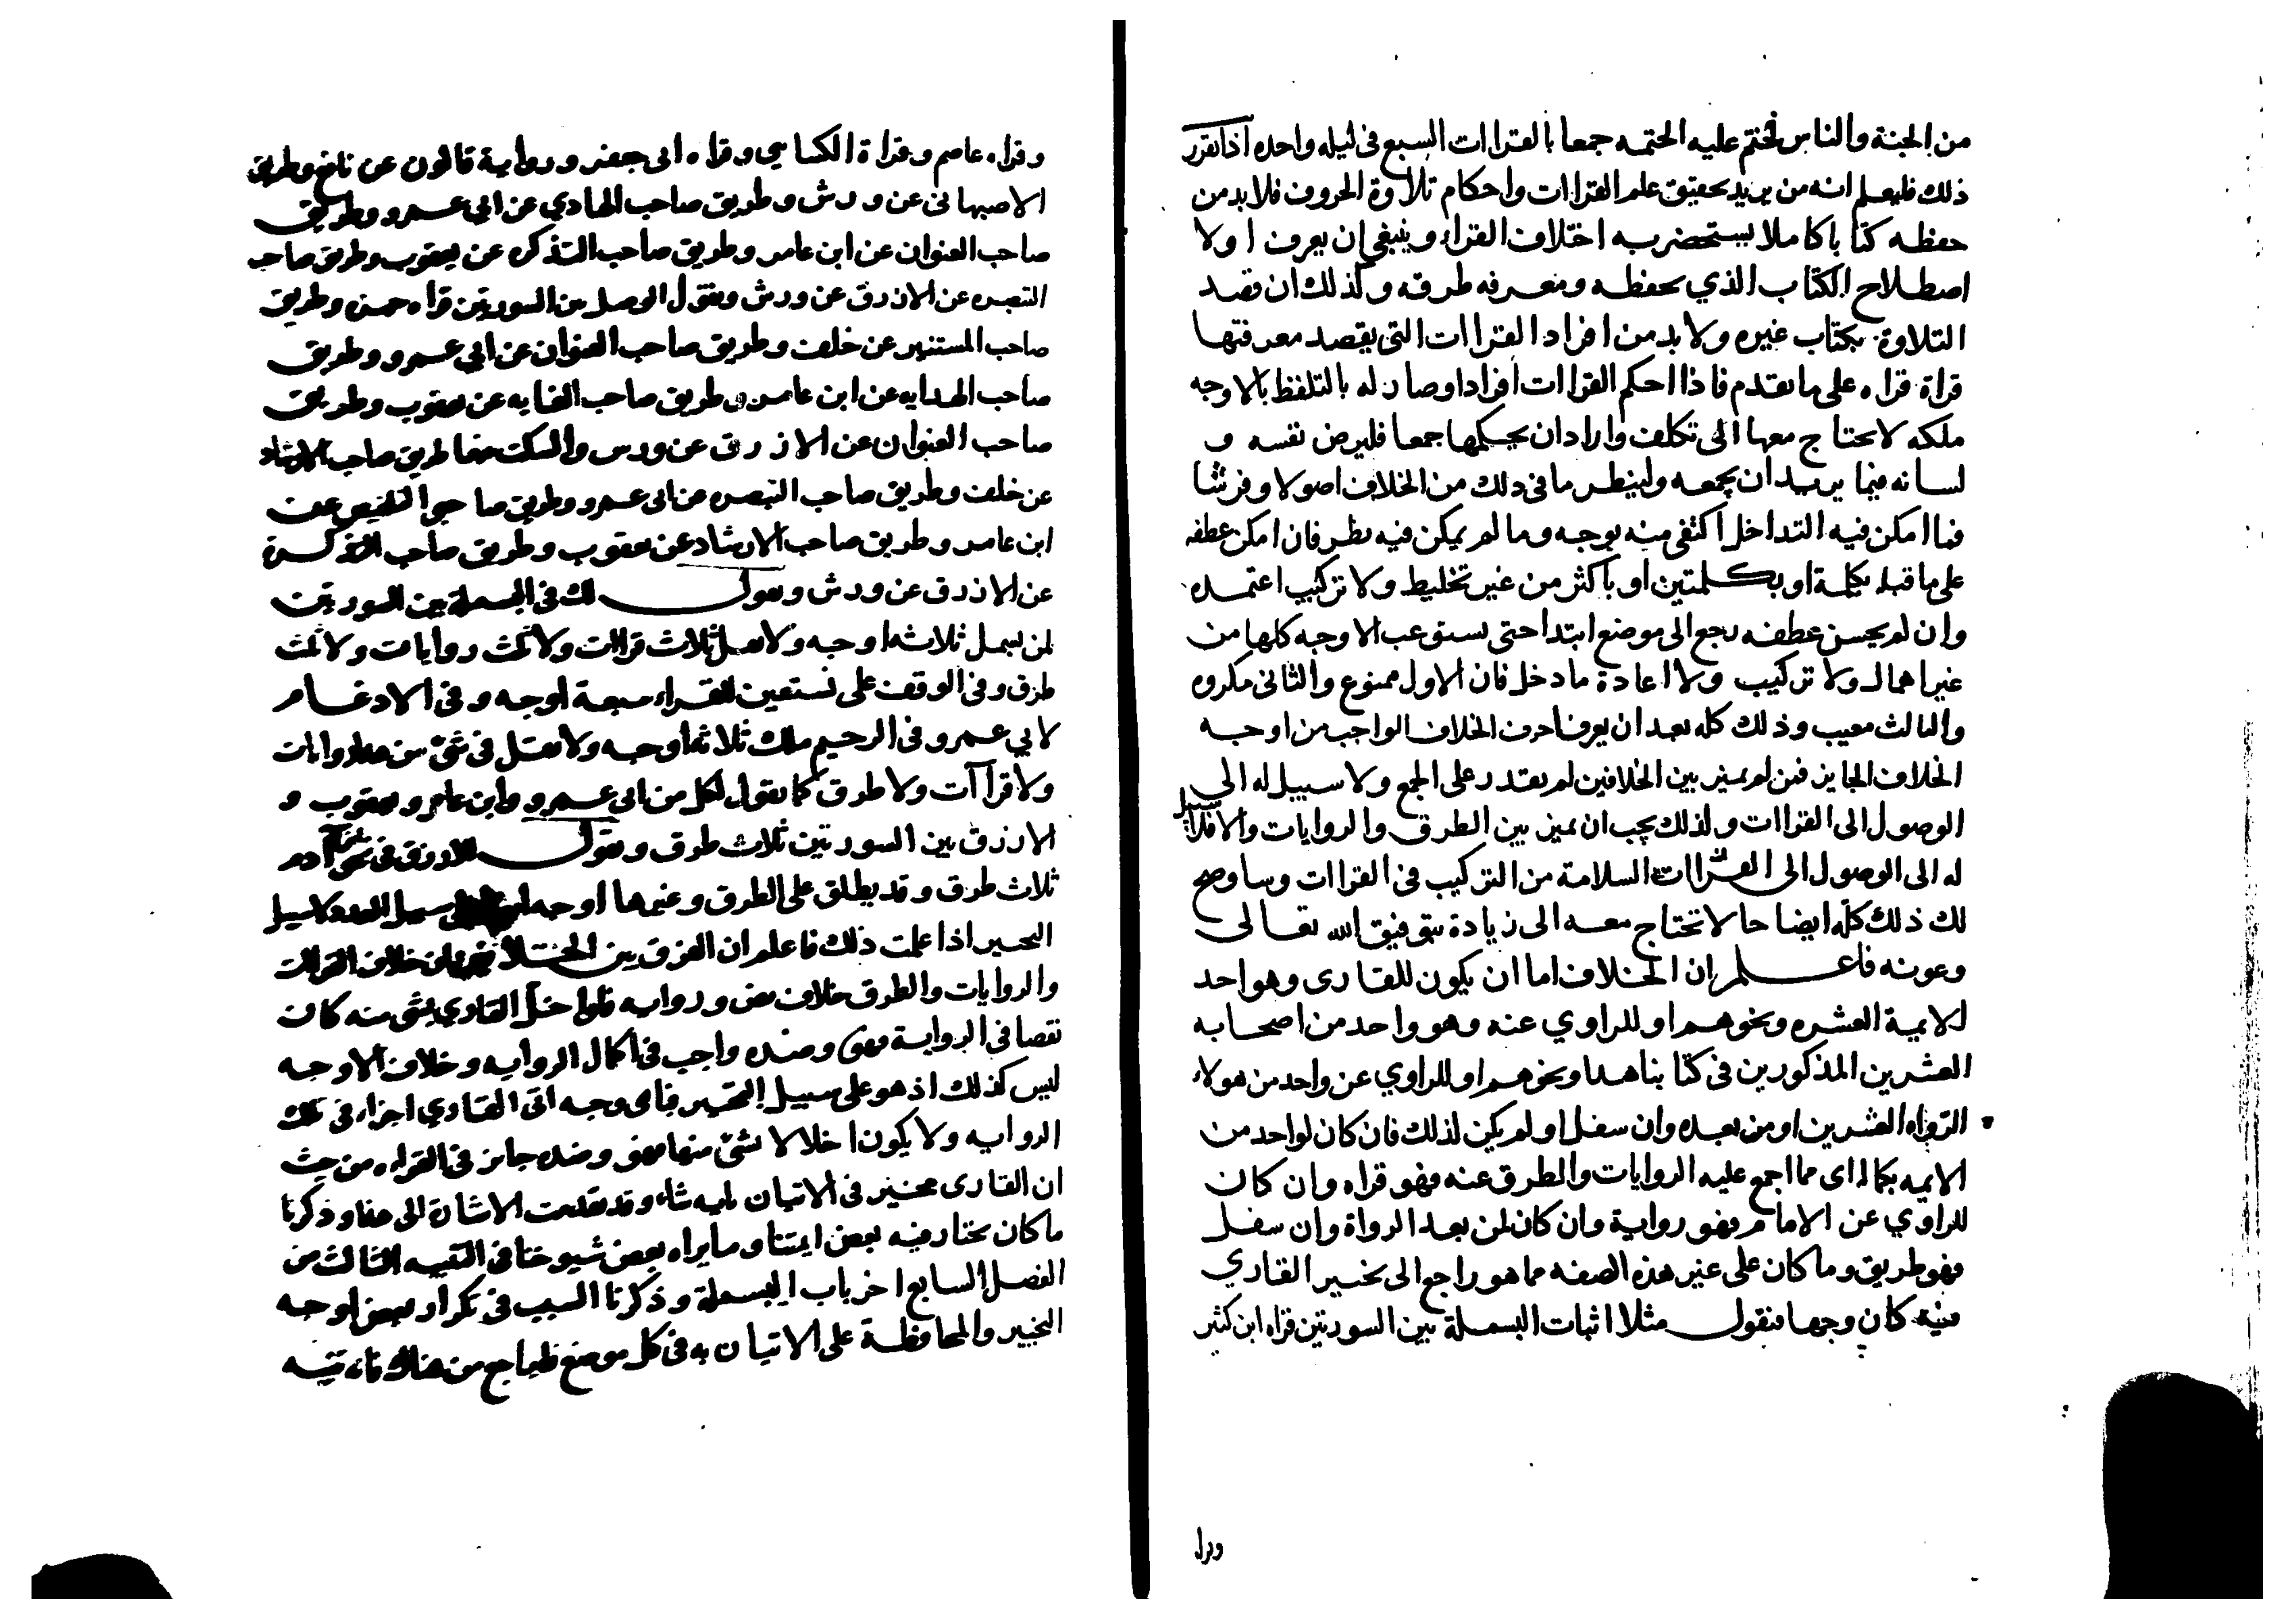 من الجنة والناس فختم عليه الختمه جمعا بالقراات السبع فى ليله واحده اذا تقرر
ذلك فليعلم انه من يريد تحقيق علم القراات واحكام تلاوة الحروف فلا بد من
حفظه كتابا كاملا يستحضر به اختلاف القراء وينبغي ان يعرف اولا
اصطلاح الكتاب الذي يحفظه ومعرفه طرقه وكذلك ان قصد
التلاوة بكتاب غيره ولا بد من افراد القراات التى يقصد معرفتها
قراة قراه على ما تقدم فاذا احكم القراات افرادا وصار له بالتلفظ بالاوجه
ملكه لا يحتاج معها الى تكلف واراد ان يحكمها جمعا فليرض نفسه و
لسانه فيما يريد ان يجمعه ولينظر ما فى ذلك من الخلاف اصولا وفرشا
فما امكن فيه التداخل اكتفى منه بوجه وما لم يمكن فيه نظر فان امكن عطفه
على ما قبله بكلمة او بكلمتين او باكثر من غير تخليط ولا تركيب اعتمده
وان لم يحسن عطفه رجع الى موضع ابتدا حتى يستوعب الاوجه كلها من
غير اهمال ولا تركيب ولا اعادة ما دخل فان الاول ممنوع والثانى مكروه
والثالث معيب وذلك كله بعد ان يعرف احرف الخلاف الواجب من اوجه
الخلاف الجايز فمن لم يميز بين الخلافين لم يقدر على الجمع ولا سبيل له الى
الوصول الى القراات ولذلك يجب ان يميز بين الطرق والروايات والا فلا سبيل
له الى الوصول الى القراات السلامة من التركيب فى القراات وساوضح
لك ذلك كله ايضاحا لا تحتاج معه الى زيادة بتوفيق الله تعالى
وعونه فاعلم ان الخلاف اما ان يكون للقارى وهو احد
الايمة العشره ونحوهم او للراوي عنه وهو واحد من اصحابه
العشرين المذكورين فى كتابنا هذا ونحوهم او للراوي عن واحد من هولاء
الرواه العشرين او من بعده وان سفل او لم يكن لذلك فان كان لواحد من
الايمه بكماله اى مما اجمع عليه الروايات والطرق عنه فهو قراه وان كان
للراوي عن الامام فهو رواية وان كان لمن بعد الرواة وان سفل
فهو طريق وما كان على غير هذه الصفه مما هو راجع الى تخيير القاري
فيه كان وجها فنقول مثلا اثبات البسملة بين السورتين قراه ابن كثير
وقراه عاصم وقراة الكسايي وقراه ابى جعفر ورواية قالون عن نافع وطريق
الاصبهانى عن ورش وطريق صاحب الهادي عن ابي عمرو وطريق
صاحب العنوان عن ابن عامر وطريق صاحب التذكره عن يعقوب وطريق صاحب
التبصره عن الازرق عن ورش ونقول الوصل بين السورتين قراه حمزه وطريق
صاحب المستنير عن خلف وطريق صاحب العنوان عن ابي عمرو وطريق
صاحب الهدايه عن ابن عامر وطريق صاحب الغايه عن يعقوب وطريق
صاحب العنوان عن الازرق عن ورس والسكت بينهما طريق صاحب الارشاد
عن خلف وطريق صاحب التبصره عن ابى عمرو وطريق صاحبي التلخيص عن
ابن عامر وطريق صاحب الارشاد عن يعقوب وطريق صاحب التذكرة
عن الازرق عن ورش ونقول لك فى البسملة بين السورتين
لمن بسمل ثلاثه اوجه ولا نقل ثلاث قراات ولا ثلث روايات ولا ثلث
طرق وفى الوقف على نستعين للقراء سبعة اوجه وفى الادغام
لابي عمرو فى الرحيم ملك ثلاثه اوجه ولا نقل فى شئ من هذا روايات
ولا قراآت ولا طرق كما نقول لكل من ابى عمرو وابن عامر ويعقوب و
الازرق بين السورتين ثلاث طرق ونقول للازرق فى نحو ادم
ثلاث طرق وقد يطلق على الطرق وغيرها اوجه على سبيل العدد لا سبيل
التخيير اذا علمت ذلك فاعلم ان الفرق بين الخلافين ان خلاف القراات
والروايات والطرق خلاف نص وروايه فلو اخل القاري بشي منه كان
نقصا فى الرواية فهو وضده واجب فى اكمال الروايه وخلاف الاوجه
ليس كذلك اذ هو على سبيل التخيير فباى وجه اتى القاري اجزاء فى تلك
الروايه ولا يكون اخلالا بشئ منها فهو وضده جايز فى القراه من حيث
ان القارى مخير فى الاتيان بايه شاء وقد تقدمت الاشارة الى هذا وذكرنا
ما كان يختار فيه بعض ايمتنا وما يراه بعض شيوخنا فى التنبيه الثالث من
الفصل السابع اخر باب البسملة وذكرنا السبب فى تكرار بعض اوجه
التخيير والمحافظة على الاتيان به فى كل موضع فليراجع من هناك فانه تنبيه